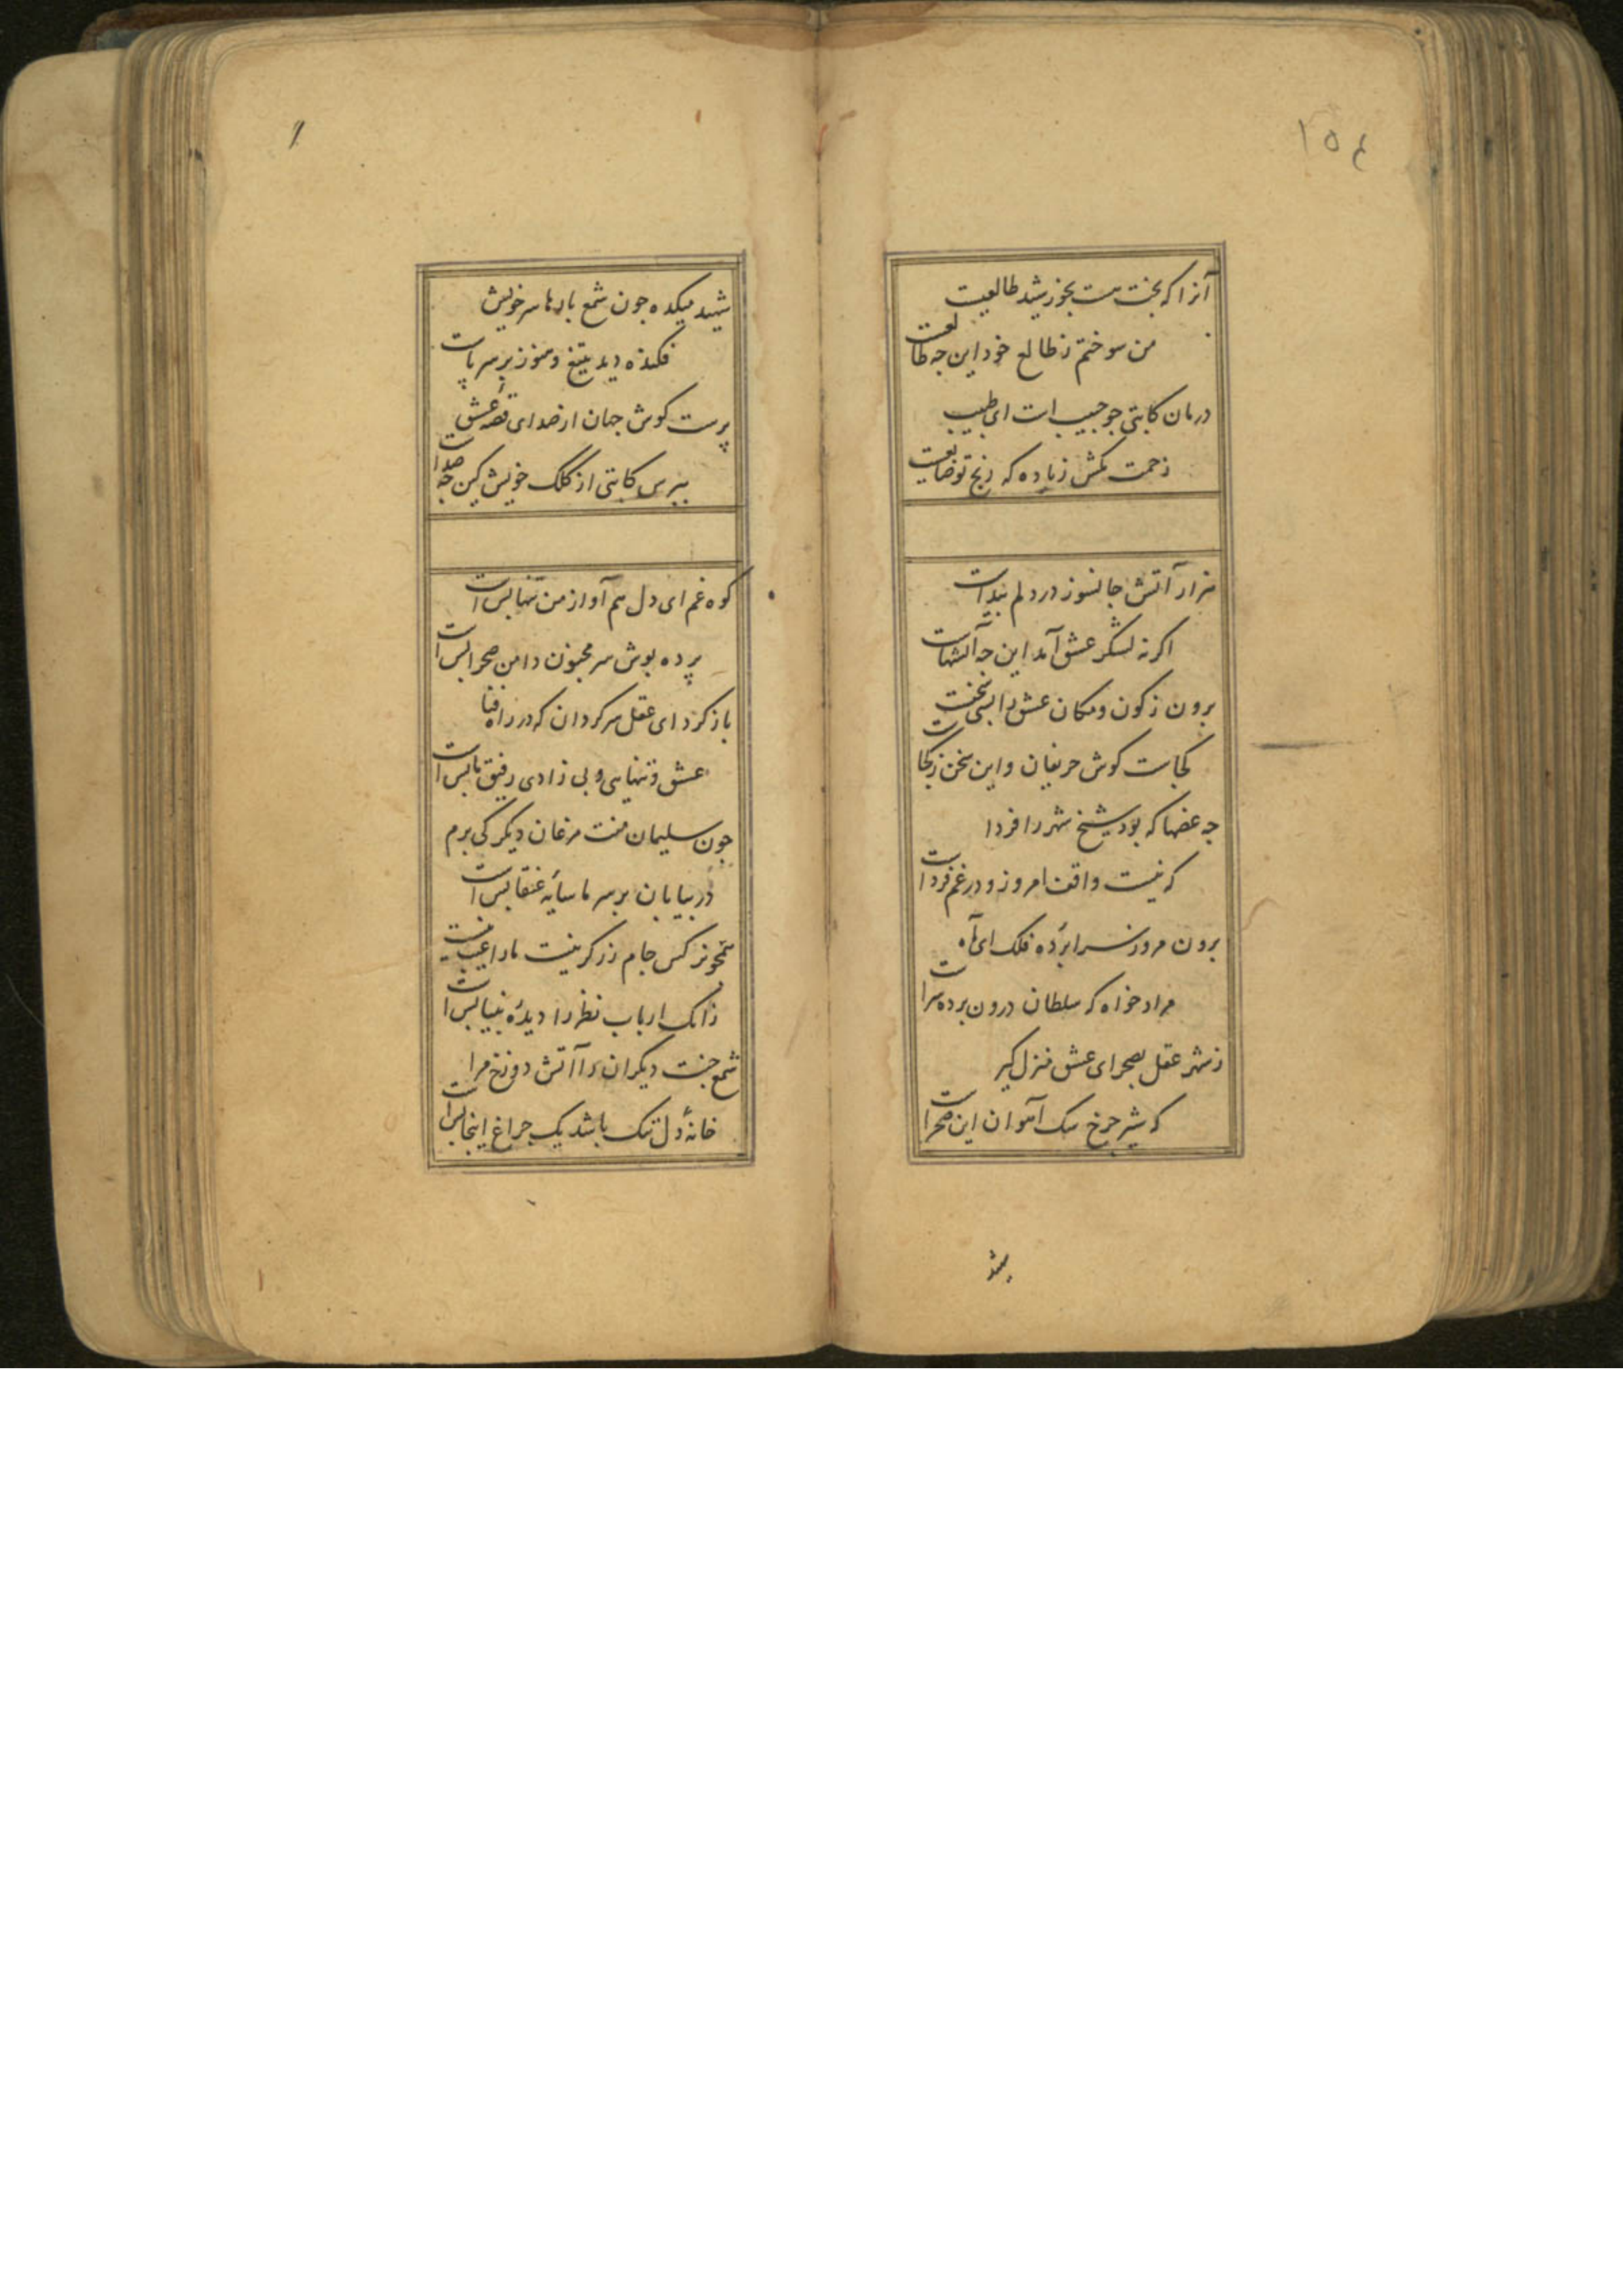 ۱۵۴
آنرا که بخت هست بخورشید طالعیست
من سوختم ز طالع خود این چه طالعست
درمان کاتبی چو حبیب است ای طبیب
زحمت مکش زیاده که رنج تو ضایعست
هزار آتش جانسوز در دلم پیداست
اگر نه لشکر عشق آمد این چه آتشهاست
برون ز کون و مکان عشق را بسی سخنست
کجاست گوش حریفان و این سخن ز کجاست
چه غصها که بود شیخ شهر را فردا
که نیست واقف امروز و در غم فرداست
برون مرو ز سراپرده فلک ای آه
مراد خواه که سلطان درون پرده سراست
ز شهر عقل بصحرای عشق منزل گیر
که شیر چرخ سگ آهوان این صحراست
شهید
شهید میکده چون شمع بارها سر خویش
فکنده دید بتیغ و هنوز بر سر پاست
پرست گوش جهان از صدای قصه عشق
بپرس کاتبی از کلک خویش کین چه صداست
کوه غم ای دل هم آواز من تنها بس است
پرده پوش سر مجنون دامن صحرا بس است
باز گرد ای عقل سرگردان که در راه فنا
عشق و تنهایی و بی زادی رفیق ما بس است
چون سلیمان منت مرغان دیگر کی برم
در بیابان بر سر ما سایهٔ عنقا بس است
همچو نرگس جام زر گر نیست ما را عیب نیست
زانک ارباب نظر را دیدهٔ بینا بس است
شمع جنت دیگران را آتش دوزخ مرا
خانهٔ دل تنک باشد یک چراغ اینجا بس است